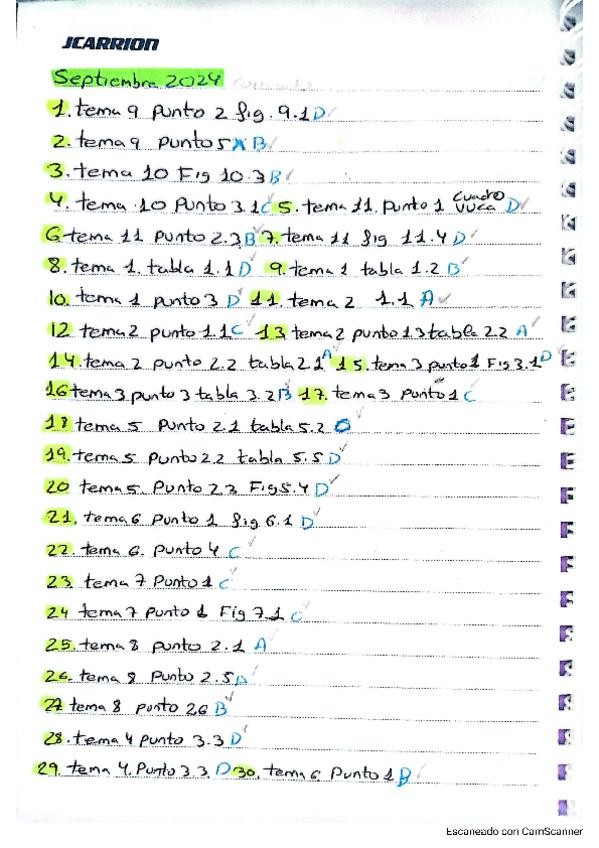 JCARRION
Septiembre 2024
1. tema 9 punto 2 fig. 9.1 D
2. tema 9 punto 5 B
3. tema 10 Fig 10.3 B
4. tema 10 Punto 3.1 C 5. tema 11. punto 1 cuadro VUCA D
6 tema 11 punto 2.3 B 7. tema 11 fig 11.4 D
8. tema 1. tabla 1.1 D 9. tema 1 tabla 1.2 B
10. tema 1 punto 3 D 11. tema 2 1.1 A
12 tema 2 punto 1.1 C 13 tema 2 punto 1.3 tabla 2.2 A
14. tema 2 punto 2.2 tabla 2.1 A 15. tema 3 punto 1 Fig 3.1 D
16 tema 3 punto 3 tabla 3.2 B 17. tema 3 Punto 1 C
18 tema 5 Punto 2.1 tabla 5.2
19. tema 5 punto 2.2 tabla 5.5 D
20 tema 5. Punto 2.3 Fig 5.4 D
21. tema 6 Punto 1 fig 6.1 D
22. tema 6. punto 4 C
23 tema 7 Punto 1 C
24 tema 7 punto 1 Fig 7.1 C
25. tema 8 punto 2.1 A
26. tema 8 Punto 2.5 D
27 tema 8 punto 2.6 B
28. tema 4 punto 3.3 D
29. tema 4. Punto 3.3. D 30. tema 6 Punto 1 B
Escaneado con CamScanner